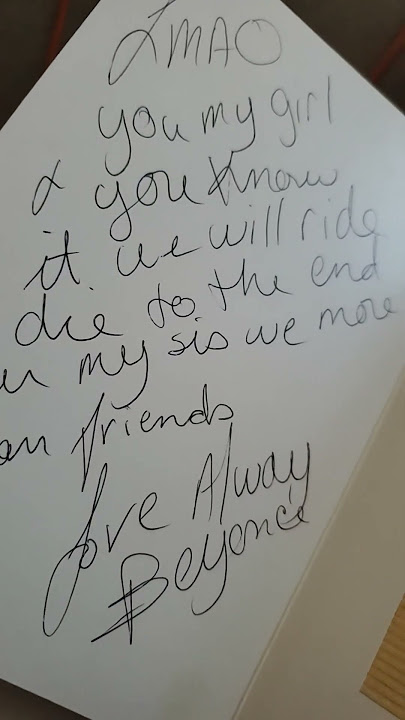 LMAO
you my girl
& you know
it. we will ride
die to the end
my sis we more
friends
Love Alway
Beyonce